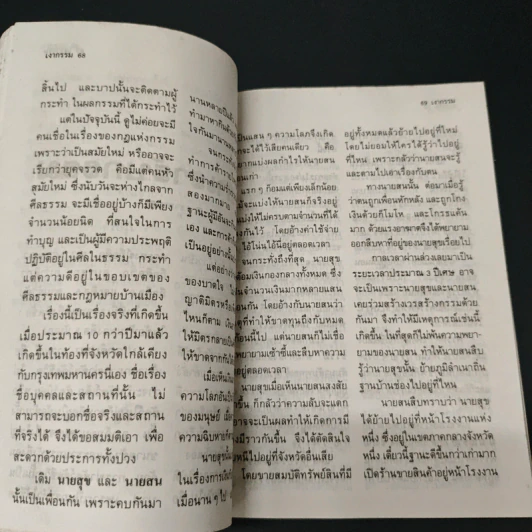 เงากรรม 68
สิ้นไป และบาปนั้นจะติดตามผู้
กระทำ ในผลกรรมที่ได้กระทำไว้
แต่ในปัจจุบันนี้ ดูไม่ค่อยจะมี
คนเชื่อในเรื่องของกฎแห่งกรรม
เพราะว่าเป็นสมัยใหม่ หรืออาจจะ
เรียกว่ายุคจรวด คือมีแต่คนหัว
สมัยใหม่ ซึ่งนับวันจะห่างไกลจาก
ศีลธรรม จะมีเชื่ออยู่บ้างก็มีเพียง
จำนวนน้อยนิด ที่สนใจในการ
ทำบุญ และเป็นผู้มีความประพฤติ
ปฏิบัติอยู่ในศีลในธรรม กระทำ
แต่ความดีอยู่ในขอบเขตของ
ศีลธรรมและกฎหมายบ้านเมือง
เรื่องนี้เป็นเรื่องจริงที่เกิดขึ้น
เมื่อประมาณ 10 กว่าปีมาแล้ว
เกิดขึ้นในท้องที่จังหวัดใกล้เคียง
กับกรุงเทพมหานครนี่เอง ชื่อเรื่อง
ชื่อบุคคลและสถานที่นั้น ไม่
สามารถจะบอกชื่อจริงและสถาน
ที่จริงได้ จึงได้ขอสมมติเอา เพื่อ
สะดวกด้วยประการทั้งปวง
เดิม นายสุข และ นายสน
นั้นเป็นเพื่อนกัน เพราะคบกันมา
นานหลายปี
ทำมาหากิน
ใจกันมานาน
จนกระ
ทำการค้า
ซึ่งนำความ
สองมากมาย
ฐานะผู้มีอัน
เอง และการค้า
เป็นอยู่อย่างนั้น
แต่อย่าง
ของบาดใจ
ญาติมิตรหรือ
ไหนก็ตาม
ให้มิตรกลาย
ให้ขาดจากกัน
เมื่อเห็น
ความโลภอันเป็น
ของมนุษย์ เมื่อ
ความฉิบหายก็
นายสุข
ในเรื่องการเงิน
เมื่อนาน ๆ ไป
69 เงากรรม
แสน ๆ ความโลภจึงเกิด
จะได้ไว้เสียคนเดียว คือ
ยากแบ่งผลกำไรให้นายสน
เก่า
แรก ๆ ก็อมแต่เพียงเล็กน้อย
ให้นายสนก็จริงอยู่
แบ่งให้ไม่ครบตามจำนวนที่ได้
โดยอ้างว่าค่าใช้จ่าย
โน่นไอ้นี่อยู่ตลอดเวลา
จนกระทั่งถึงที่สุด นายสุข
อมเงินกองกลางทั้งหมด ซึ่ง
จำนวนเงินมากมายหลายแสน
กัน โดยอ้างกับนายสนว่า
ที่ทำให้ขาดทุนถึงกับหมด
แต่นายสนก็ไม่เชื่อ
พยายามเซ้าซี้และสืบหาความ
อยู่ตลอดเวลา
นายสุขเมื่อเห็นนายสนสงสัย
ก็กลัวว่าความลับจะแตก
จะเป็นผลทำให้เกิดการมี
มีราวกันขึ้น จึงได้ตัดสินใจ
หนีไปอยู่ที่จังหวัดอื่นเสีย
โดยขายสมบัติทรัพย์สินที่มี
อยู่ทั้งหมดแล้วย้ายไปอยู่ที่ใหม่
โดยไม่ยอมให้ใครได้รู้ว่าไปอยู่
ที่ไหน เพราะกลัวว่านายสนจะรู้
และตามไปเอาเรื่องกับตน
ทางนายสนนั้น ต่อมาเมื่อรู้
ว่าตนถูกเพื่อนหักหลัง และถูกโกง
เงินด้วยก็โมโห และโกรธแค้น
มาก ด้วยแรงอาฆาตจึงได้พยายาม
ออกสืบหาที่อยู่ของนายสุขเรื่อยไป
กาลเวลาผ่านล่วงเลยมาเป็น
ระยะเวลาประมาณ 3 ปีเศษ อาจ
จะเป็นเพราะนายสุขและนายสน
เคยร่วมสร้างเวรสร้างกรรมด้วย
กันมา จึงทำให้มีเหตุการณ์เช่นนี้
เกิดขึ้น ในที่สุดก็ไม่พ้นความพยา-
ยามของนายสน ทำให้นายสนสืบ
รู้ว่านายสุขนั้น ย้ายภูมิลำเนาถิ่น
ฐานบ้านช่องไปอยู่ที่ไหน
นายสนสืบทราบว่า นายสุข
ได้ย้ายไปอยู่ที่หน้าโรงงานแห่ง
หนึ่ง ซึ่งอยู่ในเขตภาคกลางจังหวัด
หนึ่ง เดี๋ยวนี้ฐานะดีขึ้นกว่าเก่ามาก
เปิดร้านขายสินค้าอยู่หน้าโรงงาน